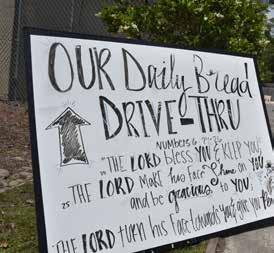 OUR Daily Bread!
DRIVE-THRU
NUMBERS 6
"THE LORD bless YOU & KEEP YOU;
25 THE LORD make his face shine on YOU
and be gracious to YOU;
THE LORD turn his face towards you & give you